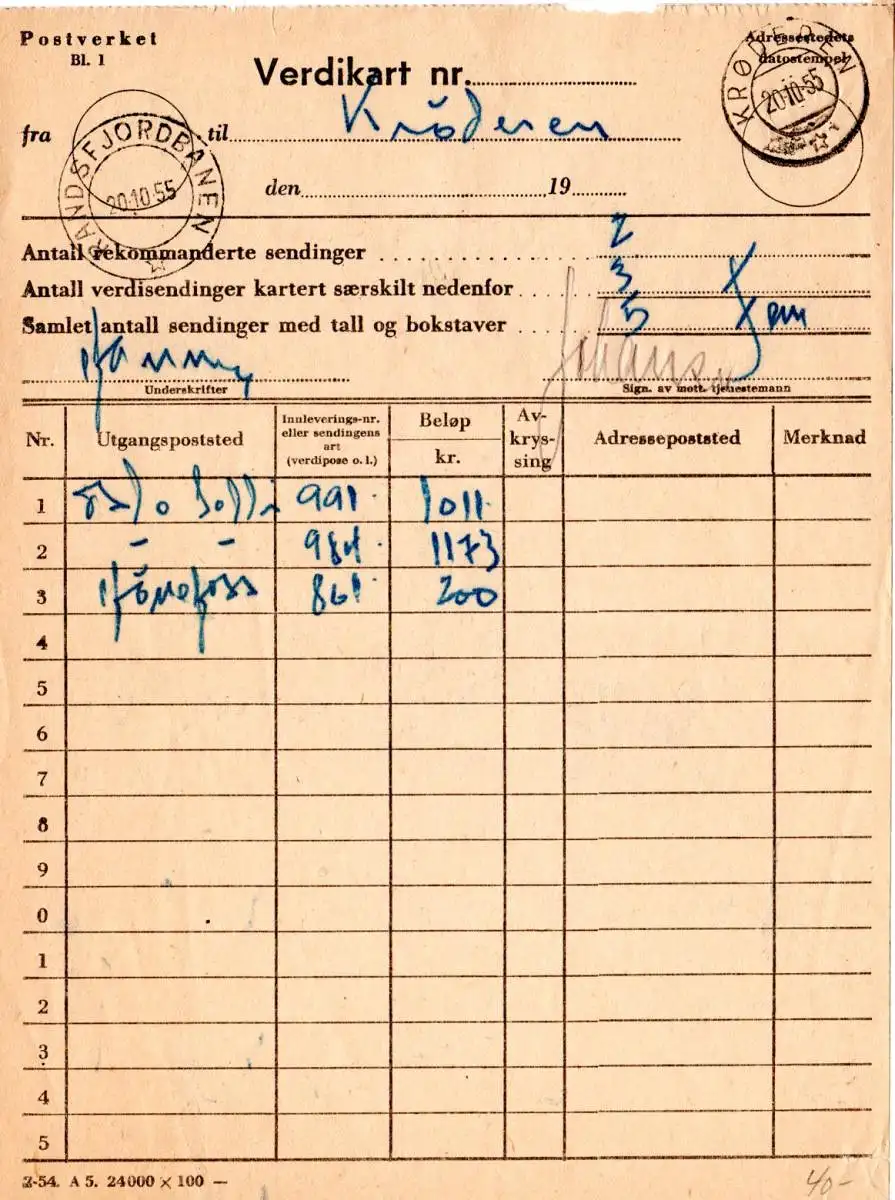 Postverket
Bl. 1
Verdikart nr.
Adressestedets
datostempel
KRØDEREN
20.10.55
fra
til Krøderen
RANDSFJORDBANEN
20.10.55
den 19
Antall rekommanderte sendinger 2
Antall verdisendinger kartert særskilt nedenfor 3
Samlet antall sendinger med tall og bokstaver 5 fem
Underskrifter
Sign. av mott. tjenestemann
Nr. Utgangspoststed Innleverings-nr. eller sendingens art (verdipose o. l.) Beløp kr. Av-krys-sing Adressepoststed Merknad
1 Oslo Solli 991 1011
2 - - 984 1173
3 Hønefoss 861 200
4
5
6
7
8
9
0
1
2
3
4
5
Z-54. A 5. 24000 × 100 —
40-